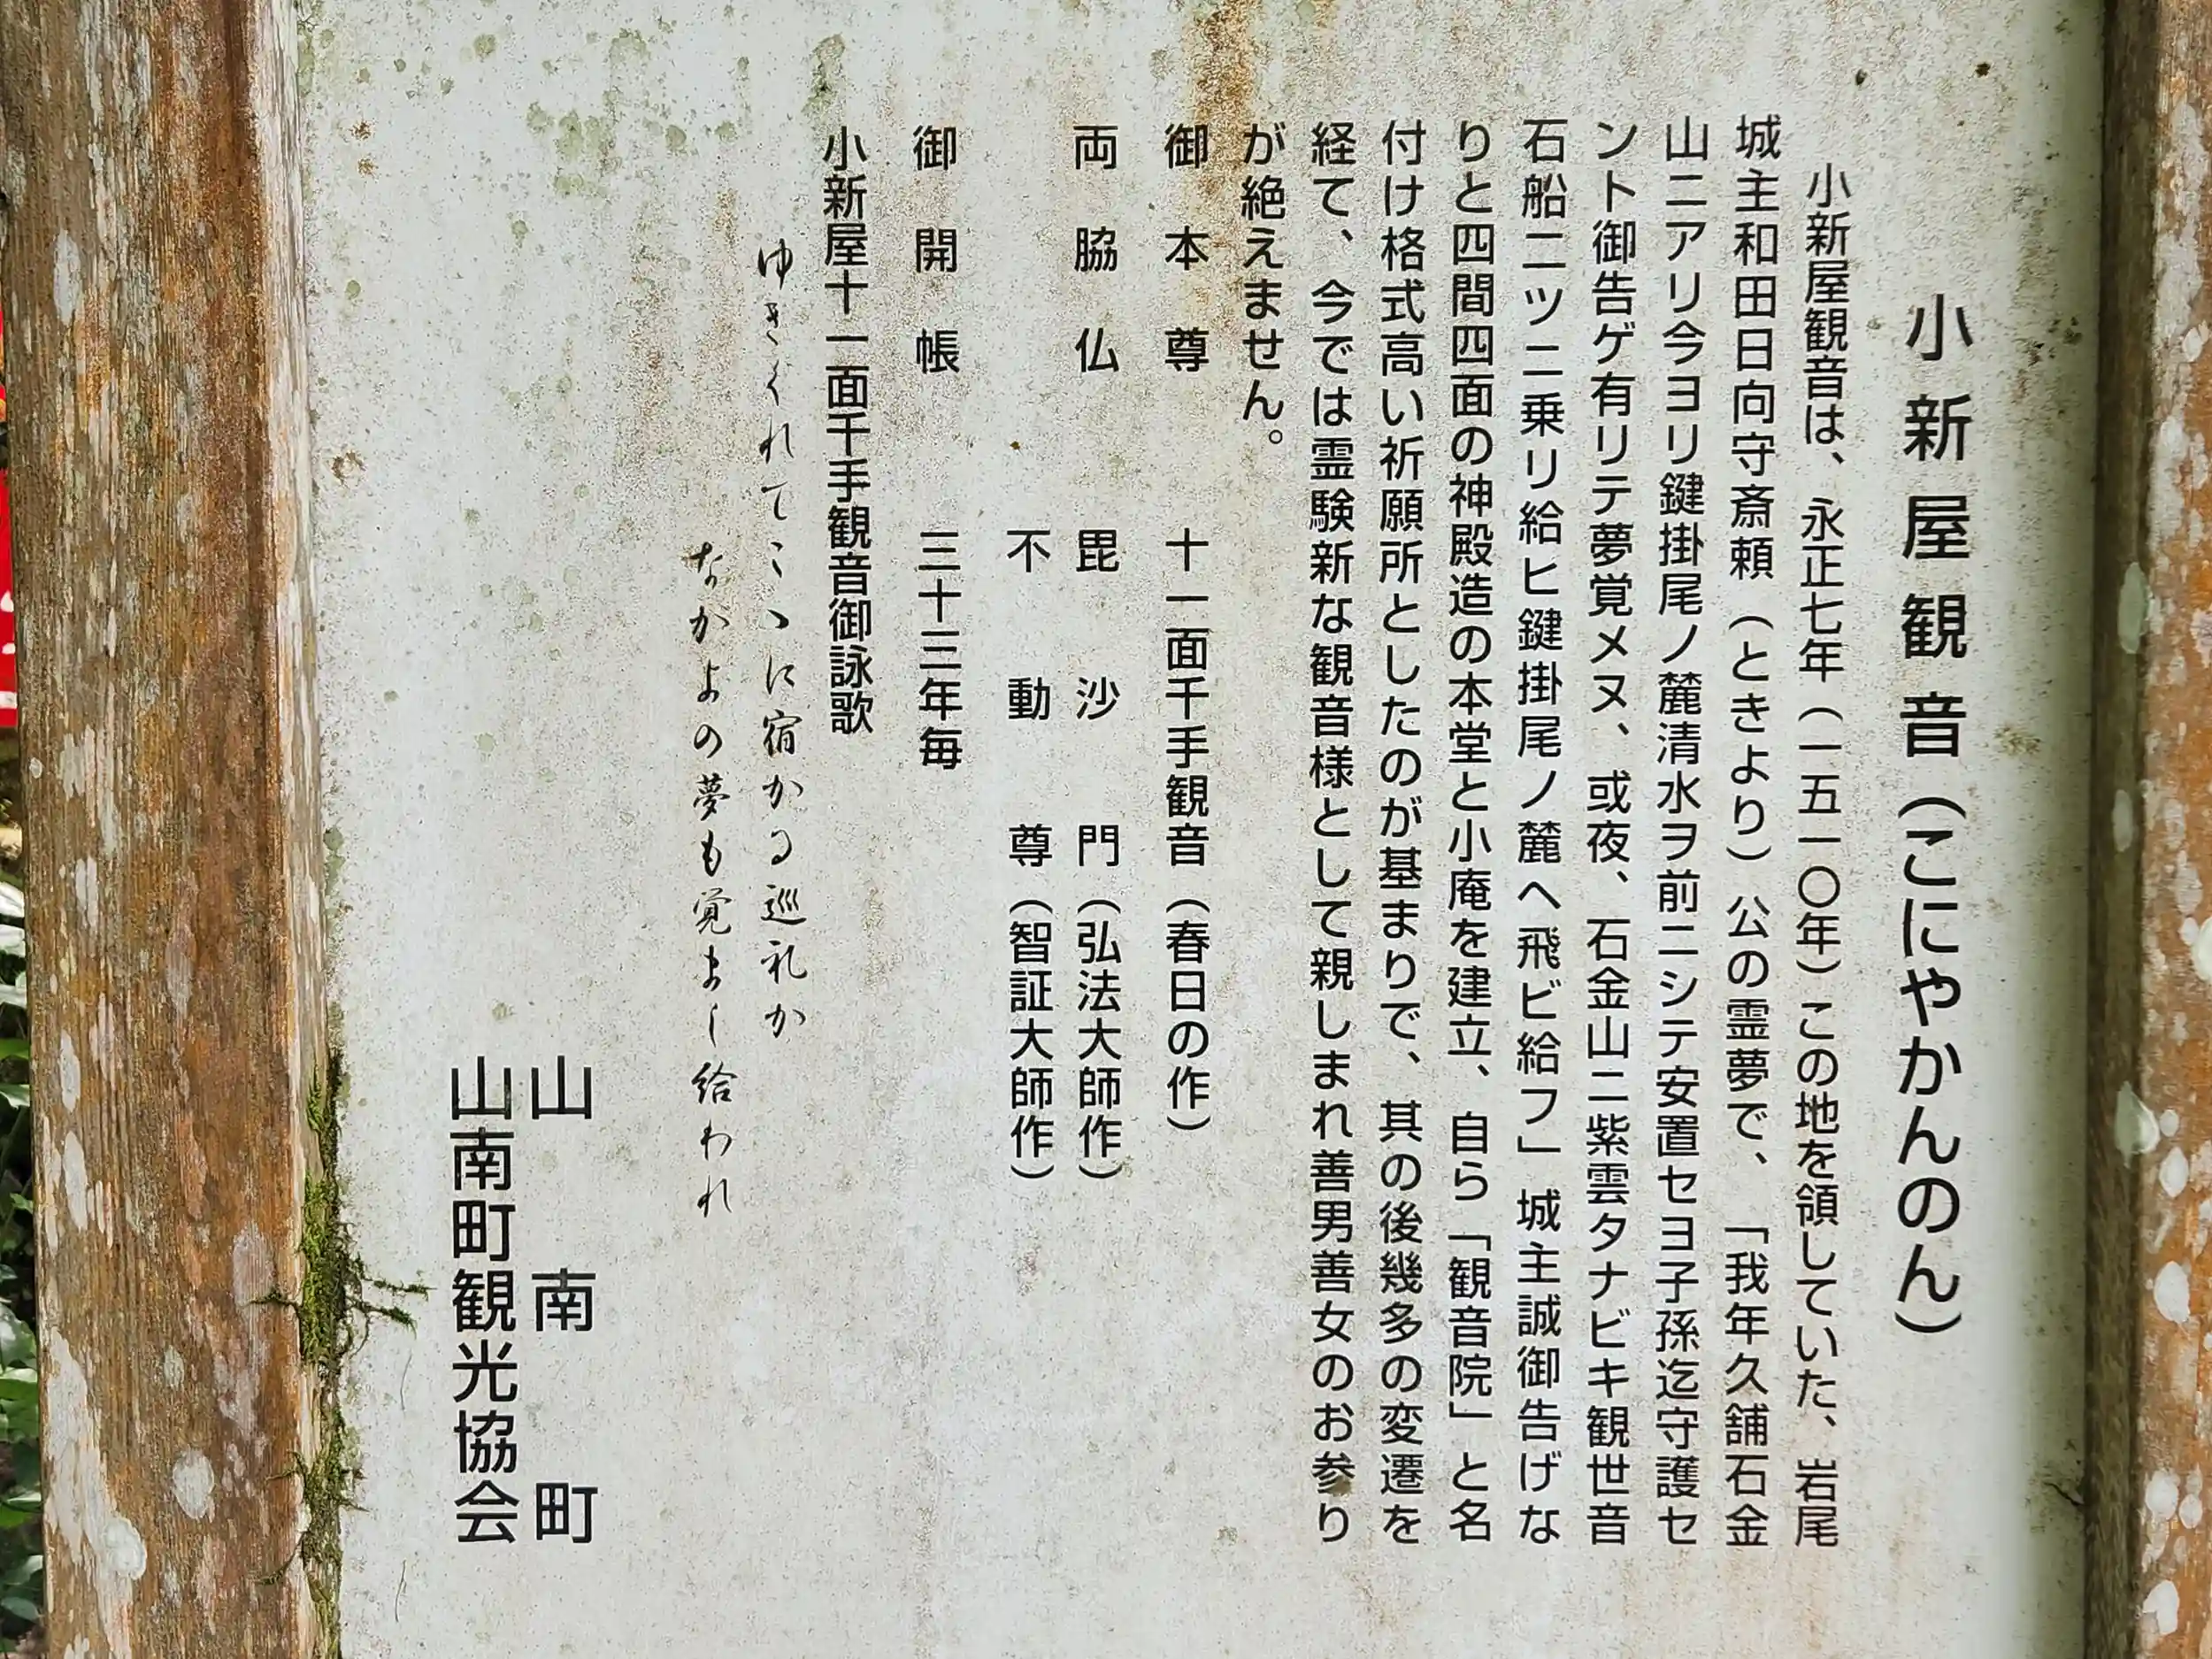 小新屋観音（こにやかんのん）
小新屋観音は、永正七年（一五一〇年）この地を領していた、岩尾
城主和田日向守斎頼（ときより）公の霊夢で、「我年久舗石金
山ニアリ今ヨリ鍵掛尾ノ麓清水ヲ前ニシテ安置セヨ子孫迄守護セ
ント御告ゲ有リテ夢覚メヌ、或夜、石金山ニ紫雲タナビキ観世音
石船二ツニ乗リ給ヒ鍵掛尾ノ麓へ飛ビ給フ」城主誠御告げな
りと四間四面の神殿造の本堂と小庵を建立、自ら「観音院」と名
付け格式高い祈願所としたのが基まりで、其の後幾多の変遷を
経て、今では霊験新な観音様として親しまれ善男善女のお参り
が絶えません。
御本尊　十一面千手観音（春日の作）
両脇仏　毘沙門（弘法大師作）
不動尊（智証大師作）
御開帳　三十三年毎
小新屋十一面千手観音御詠歌
ゆきくれてこゝに宿かる巡礼か
なかよの夢も覚まし給われ
山南町
山南町観光協会